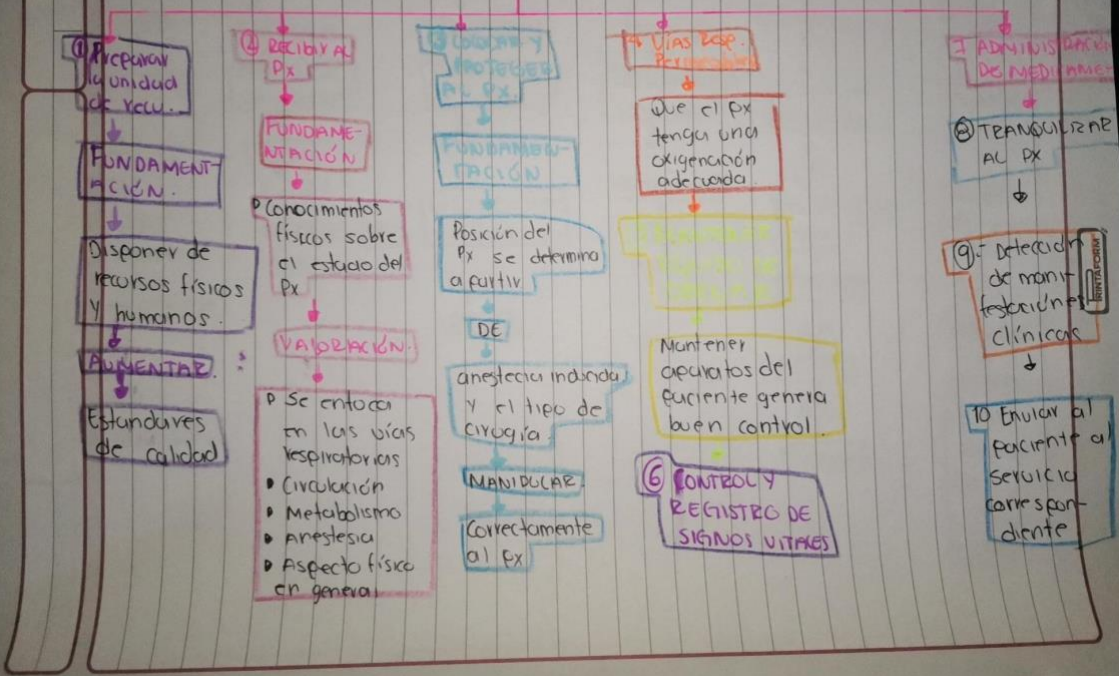 ① Preparar
la unidad
de recu.
FUNDAMENT-
ACIÓN.
Disponer de
recursos físicos
y humanos.
AUMENTAR :
Estandares
de calidad
② RECIBIR AL
Px
FUNDAME-
NTACIÓN
Conocimientos
físicos sobre
el estado del
Px
VALORACIÓN.
Se enfoca
en las vías
respiratorias
• Circulación
• Metabolismo
• Anestesia
• Aspecto físico
en general
3 COLOCAR Y
PROTEGER
AL PX.
FUNDAMEN-
TACIÓN
Posición del
Px se determina
a partir
DE
anestecia inducida
y el tipo de
cirugía.
MANIPULAR
Correctamente
al px
4 VÍAS RESP.
Que el px
tenga una
oxigenación
adecuada.
Mantener
aparatos del
paciente genera
buen control.
⑥ CONTROL Y
REGISTRO DE
SIGNOS VITALES
7 ADMINISTRACIÓ
DE MEDICAME
⑧ TRANQUILIZAR
AL PX
⑨- Detección
de mani-
festaciones
clínicas
10 Enviar al
paciente al
servicio
correspon-
diente
PRINTAFORM